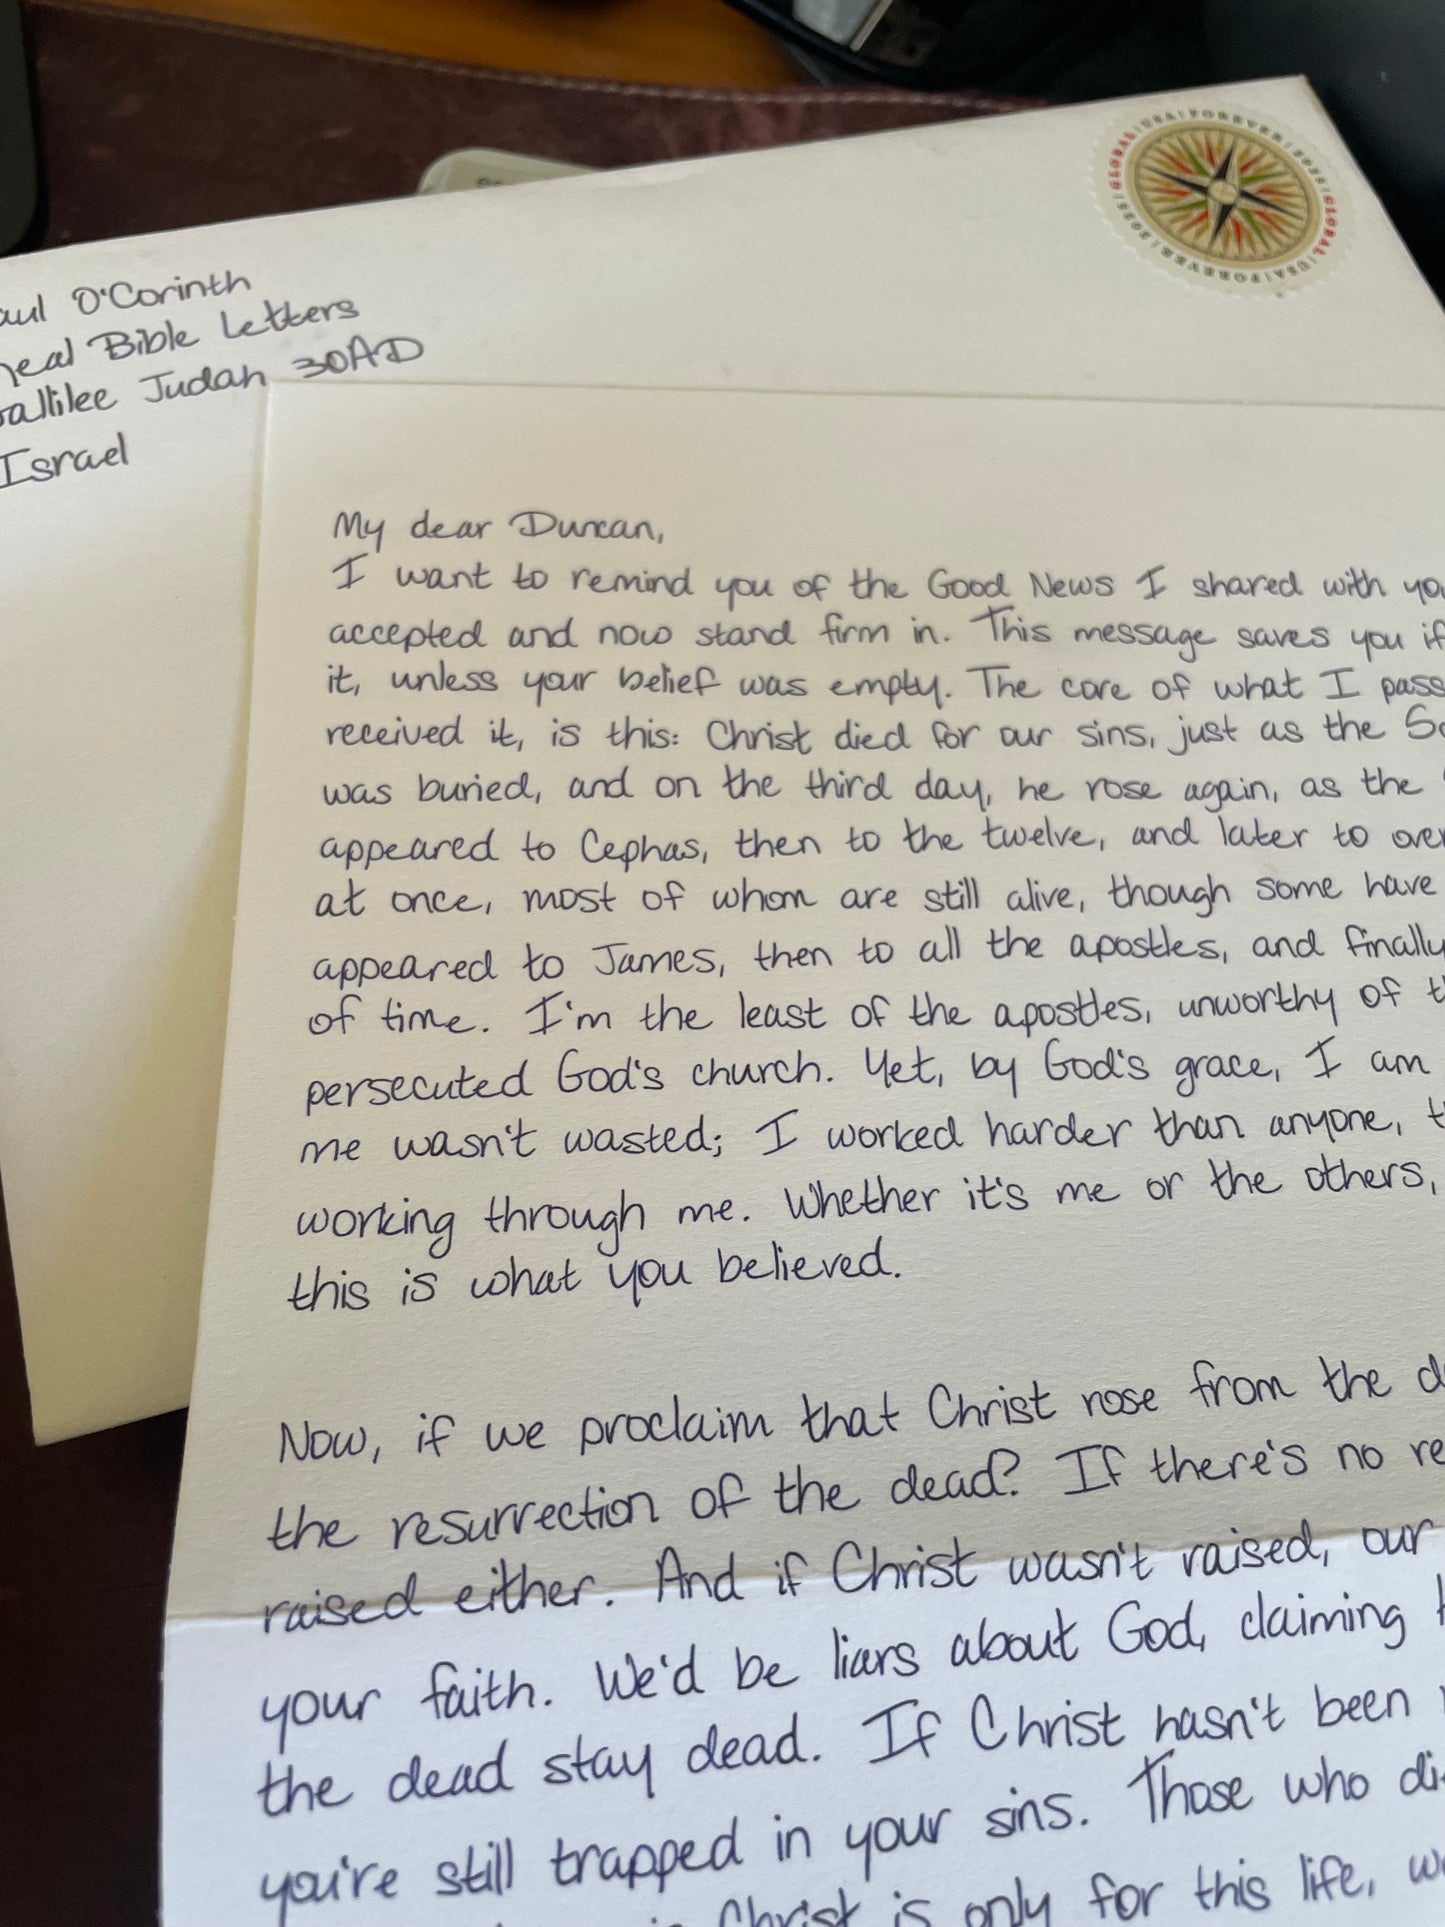 GLOBAL | USA | FOREVER | 2020 | GLOBAL | USA | FOREVER | 2020
O'Corinth
Bible Letters
Judah 30AD
Israel
My dear Duncan,
I want to remind you of the Good News I shared with
accepted and now stand firm in. This message saves you if
it, unless your belief was empty. The core of what I
received it, is this: Christ died for our sins, just as the
was buried, and on the third day, he rose again, as the
appeared to Cephas, then to the twelve, and later to
at once, most of whom are still alive, though some have
appeared to James, then to all the apostles, and finally
of time. I'm the least of the apostles, unworthy of
persecuted God's church. Yet, by God's grace, I am
me wasn't wasted; I worked harder than anyone,
working through me. Whether it's me or the others,
this is what you believed.
Now, if we proclaim that Christ rose from the
the resurrection of the dead? If there's no
raised either. And if Christ wasn't raised, our
your faith. We'd be liars about God, claiming
the dead stay dead. If Christ hasn't been
you're still trapped in your sins. Those who
Christ is only for this life,